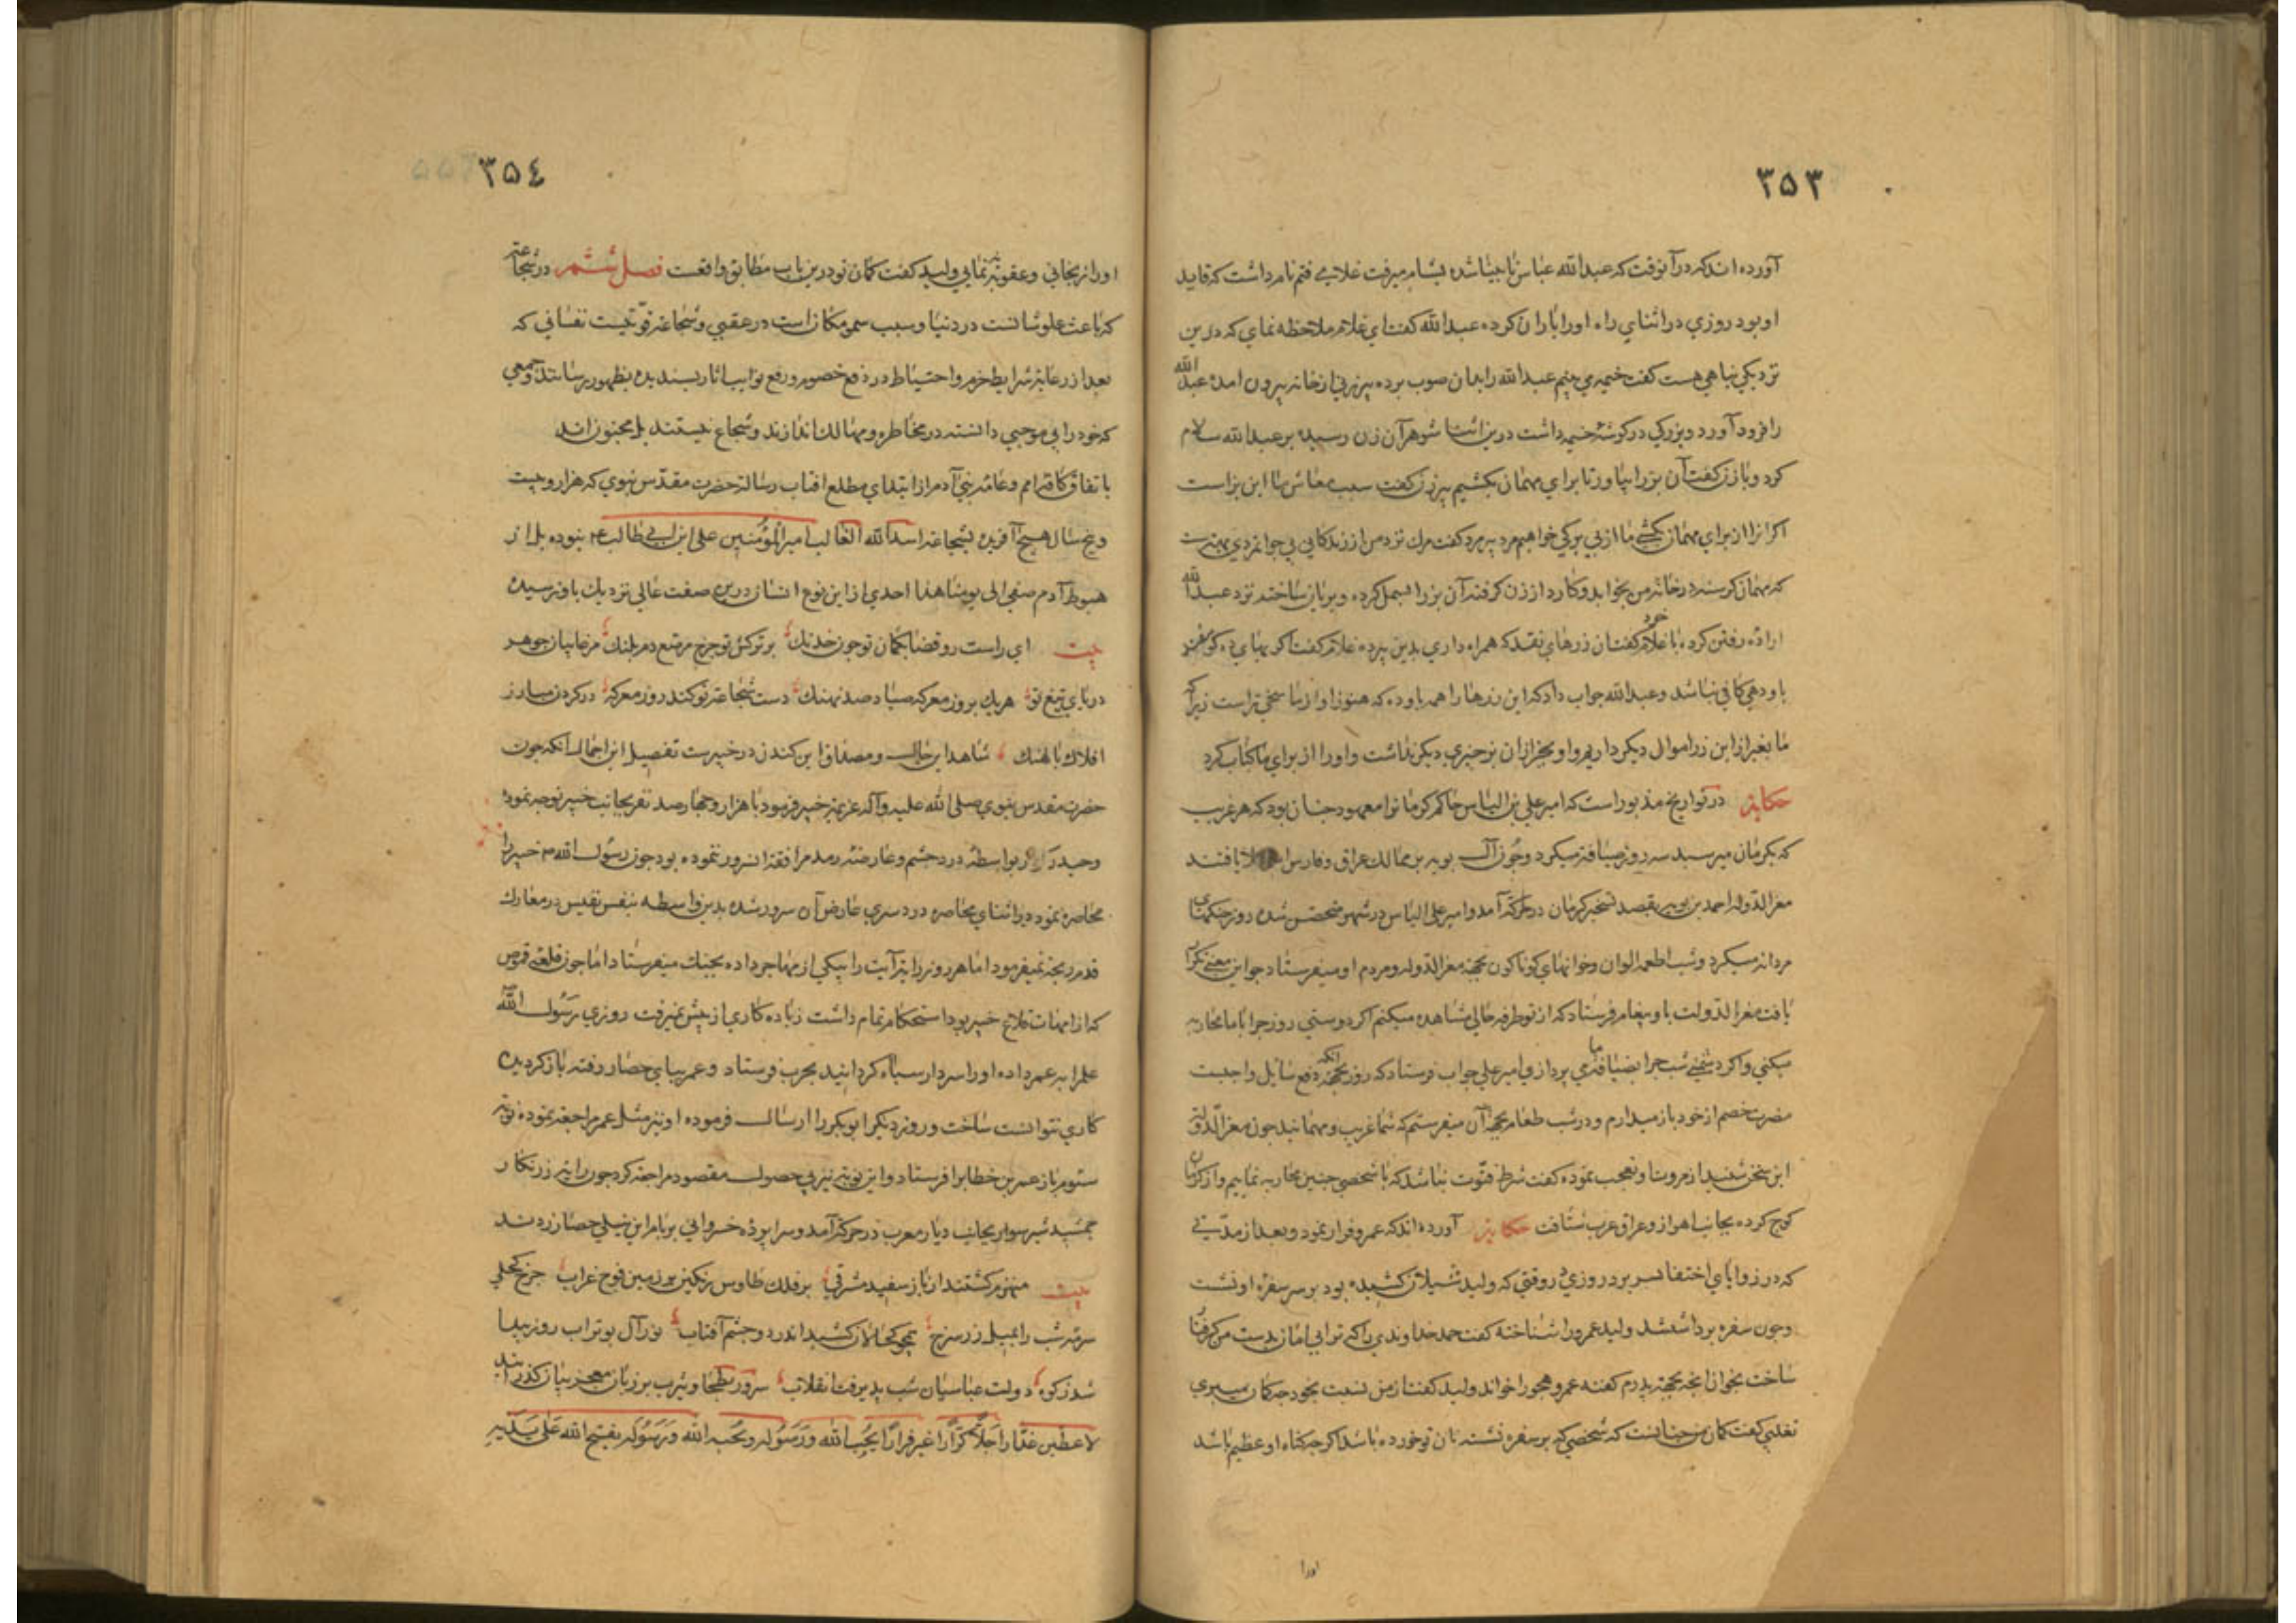 ۳۵۳
آورده اند که در آنوقت که عبدالله عباس نابینا شده بشام میرفت غلامی فتم نام داشت که قاید
او بود روزی در اثنای راه او را باران کرده عبدالله گفت ای غلام ملاحظه نمای که درین
نزدیکی پناهی هست گفت خیمه می بینم عبدالله را بدان صوب برده پیرزنی از خانه بیرون امده عبدالله
را فرود آورد و بزرکی در گوشه خیمه داشت درین اثنا شوهر آن زن رسیده بر عبدالله سلام
کرد و با زن گفت آن بز را بیاور تا برای مهمان بکشیم پیرزن گفت سبب معاش ما این بز است
اگر انرا از برای مهمان بکشی ما از بی برگی خواهیم مرد پیر مرد گفت مرک نزد من از زندگانی بی جوانمردی بهترست
که مهمان گرسنه در خانه من بخوابد و کارد از زن گرفته آن بز را بسمل کرده و بریان ساخته نزد عبدالله
اراده رفتن کرده با غلام خود گفت ان زرهای نقد که همراه داری بدین پیر ده غلام گفت اگر بهای ده گوسفند
باو دهی کافی نباشد و عبدالله جواب داد که این زرها را همه باو ده که هنوز او از ما سخی تر است زیرا که
ما بغیر از این زر اموال دیگر داریم و او بجز از ان بز چیزی دیگر نداشت و او را از برای ما کباب کرد
حکایة در تواریخ مذبور است که امیر علی بن الیاس حاکم کرمان را معهود چنان بود که هر غریب
که بکرمان میرسید سه روز ضیافة میکرد و چون آل بویه بر ممالک عراق و فارس یافتند
معزالدوله احمد بن بویه بقصد تسخیر کرمان در حرکة آمد و امیر علی الیاس در شهر متحصن شده روز جنکهای
مردانه میکرد و شب اطعمه الوان و خوانهای کوناکون بجهة معزالدوله و مردم او میفرستاد چو این معنی تکرار
یافت معزالدولت باو پیغام فرستاد که از تو طرفه حالی مشاهده میکنم اگر دوستی روز چرا با ما محاربه
میکنی و اکر دشمنی شب چرا بضیافة ما می پردازی امیر علی جواب فرستاد که روز بجهة انکه دفع سایل واجبست
مضرت خصم از خود باز میدارم و در شب طعام بجهة آن میفرستم که شما غریب و مهمانید چون معزالدوله
این سخن شنید از مروت او تعجب نموده گفت شرط فتوت نباشد که با شخصی چنین محاربه نماییم و از کرمان
کوچ کرده بجانب اهواز و عراق عرب شتافت حکایة آورده اند که عمرو فرار نمود و بعد از مدتی
که در زوایای اختفا بسر برد روزی در وقتی که ولید شیلان کشیده بود بر سر سفره او نشست
و چون سفره برداشتند ولید عمرو را شناخته گفت حمد خداوندی را که ترا بی امان بدست من گرفتار
ساخت بخوان انچه بجهة پدرم گفته عمرو هجو را خواند ولید گفت از من نسبت بخود چه گمان میبری
تغلبی گفت گمان من چنانست که شخصی که بر سفره نشسته نان تو خورده باشد اگر چه گناه او عظیم باشد
اورا
۳۵٤
او را نرنجانی و عقوبة ننمایی ولید گفت گمان تو درین باب مطابق واقعست فصل ششم در شجاعة
که باعث علو شانست در دنیا و سبب سمو مکان است در عقبی و شجاعة قوتیست نفسانی که
بعد از رعایة شرایط حزم و احتیاط در دفع خصوم و رفع نوایب اثار پسندیده بظهور رساند و جمعی
که خود را بی موجبی دانسته در مخاطره و مهالک اندازند و شجاع نیستند بل مجنون اند
باتفاق کافه امم و عامه بنی آدم از ابتدای مطلع افتاب رسالة حضرت مقدس نبوی که هزار و بیست
و پنج سال هیچ آفریده بشجاعة اسدالله الغالب امیر المؤمنین علی ابن ابی طالب ع م نبوده بل از
هبوط آدم صفی الی یومنا هذا احدی از این نوع انسان درین صفت عالی نزدیک باو نرسیده
بیت ای راست رو قضا بکمان تو چون خدنک بر ترکش تو چرخ مرقع دم پلنک مرغابیان جوهر
دریای تیغ تو هریک بروز معرکه صیاد صد نهنک دست شجاعة تو کند روز معرکه در کردن مبارز
افلاک پالهنک شاهد این حال و مصداق این کندن در خیبر ست تفصیل این اجمال انکه چون
حضرت مقدس نبوی صلی الله علیه و آله عزیمة خیبر فرمود با هزار و چهارصد نفر بجانب خیبر توجه نموده
و حیدر کرار بواسطه درد چشم و عارضه رمد مرافقة انسرور ننموده بود چون رسول الله ص خیبر را
محاصره نمود در اثنای محاصره درد سری عارض آن سرور شده بدین واسطه بنفس نفیس در معارک
قدم رنجه نمیفرمود اما هر روز رایة آیت را بیکی از مهاجر داده بجنک میفرستاد اما چون قلعه قموص
که از امهات قلاع خیبر بود استحکام تمام داشت زیاده کاری از پیش نمیرفت روزی رسول الله ص
علم را به عمر داده او را سردار سپاه گردانید بحرب فرستاد و عمر بپای حصار رفته باز گردیده
کاری نتوانست ساخت و روز دیگر ابوبکر را ارسال فرموده او نیز مثل عمر مراجعة نموده نوبة
سئوم باز عمر بن خطاب را فرستاد و این نوبة نیز بی حصول مقصود مراجعة کرد چون رایة زرنکار
جمشید شیر سوار بجانب دیار مغرب در حرکة آمد و سرا پرده خسروانی بر بام این نیلی حصار زدند
بیت منهزم گشتند از باز سفید مشرقی بر فلک طاوس رنگین بر زمین فوج غراب چرخ کحلی
سرمه شب را بمیل زر سرخ همچو کحالان کشید اندر دو چشم آفتاب نور آل بوتراب روز پیدا
شد ز کوه دولت عباسیان شب پذیرفت انقلاب سرور بطحا و یثرب بر زبان معجز بیان گذرانید
لاعطین غدا رایة رجلا کرارا غیر فرارا یحب الله و رسوله و یحبه الله و رسوله یفتح الله علی یدیه